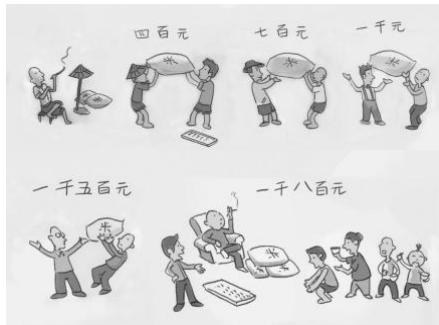 四百元
七百元
一千元
米
米
米
一千五百元
一千八百元
米
米
米